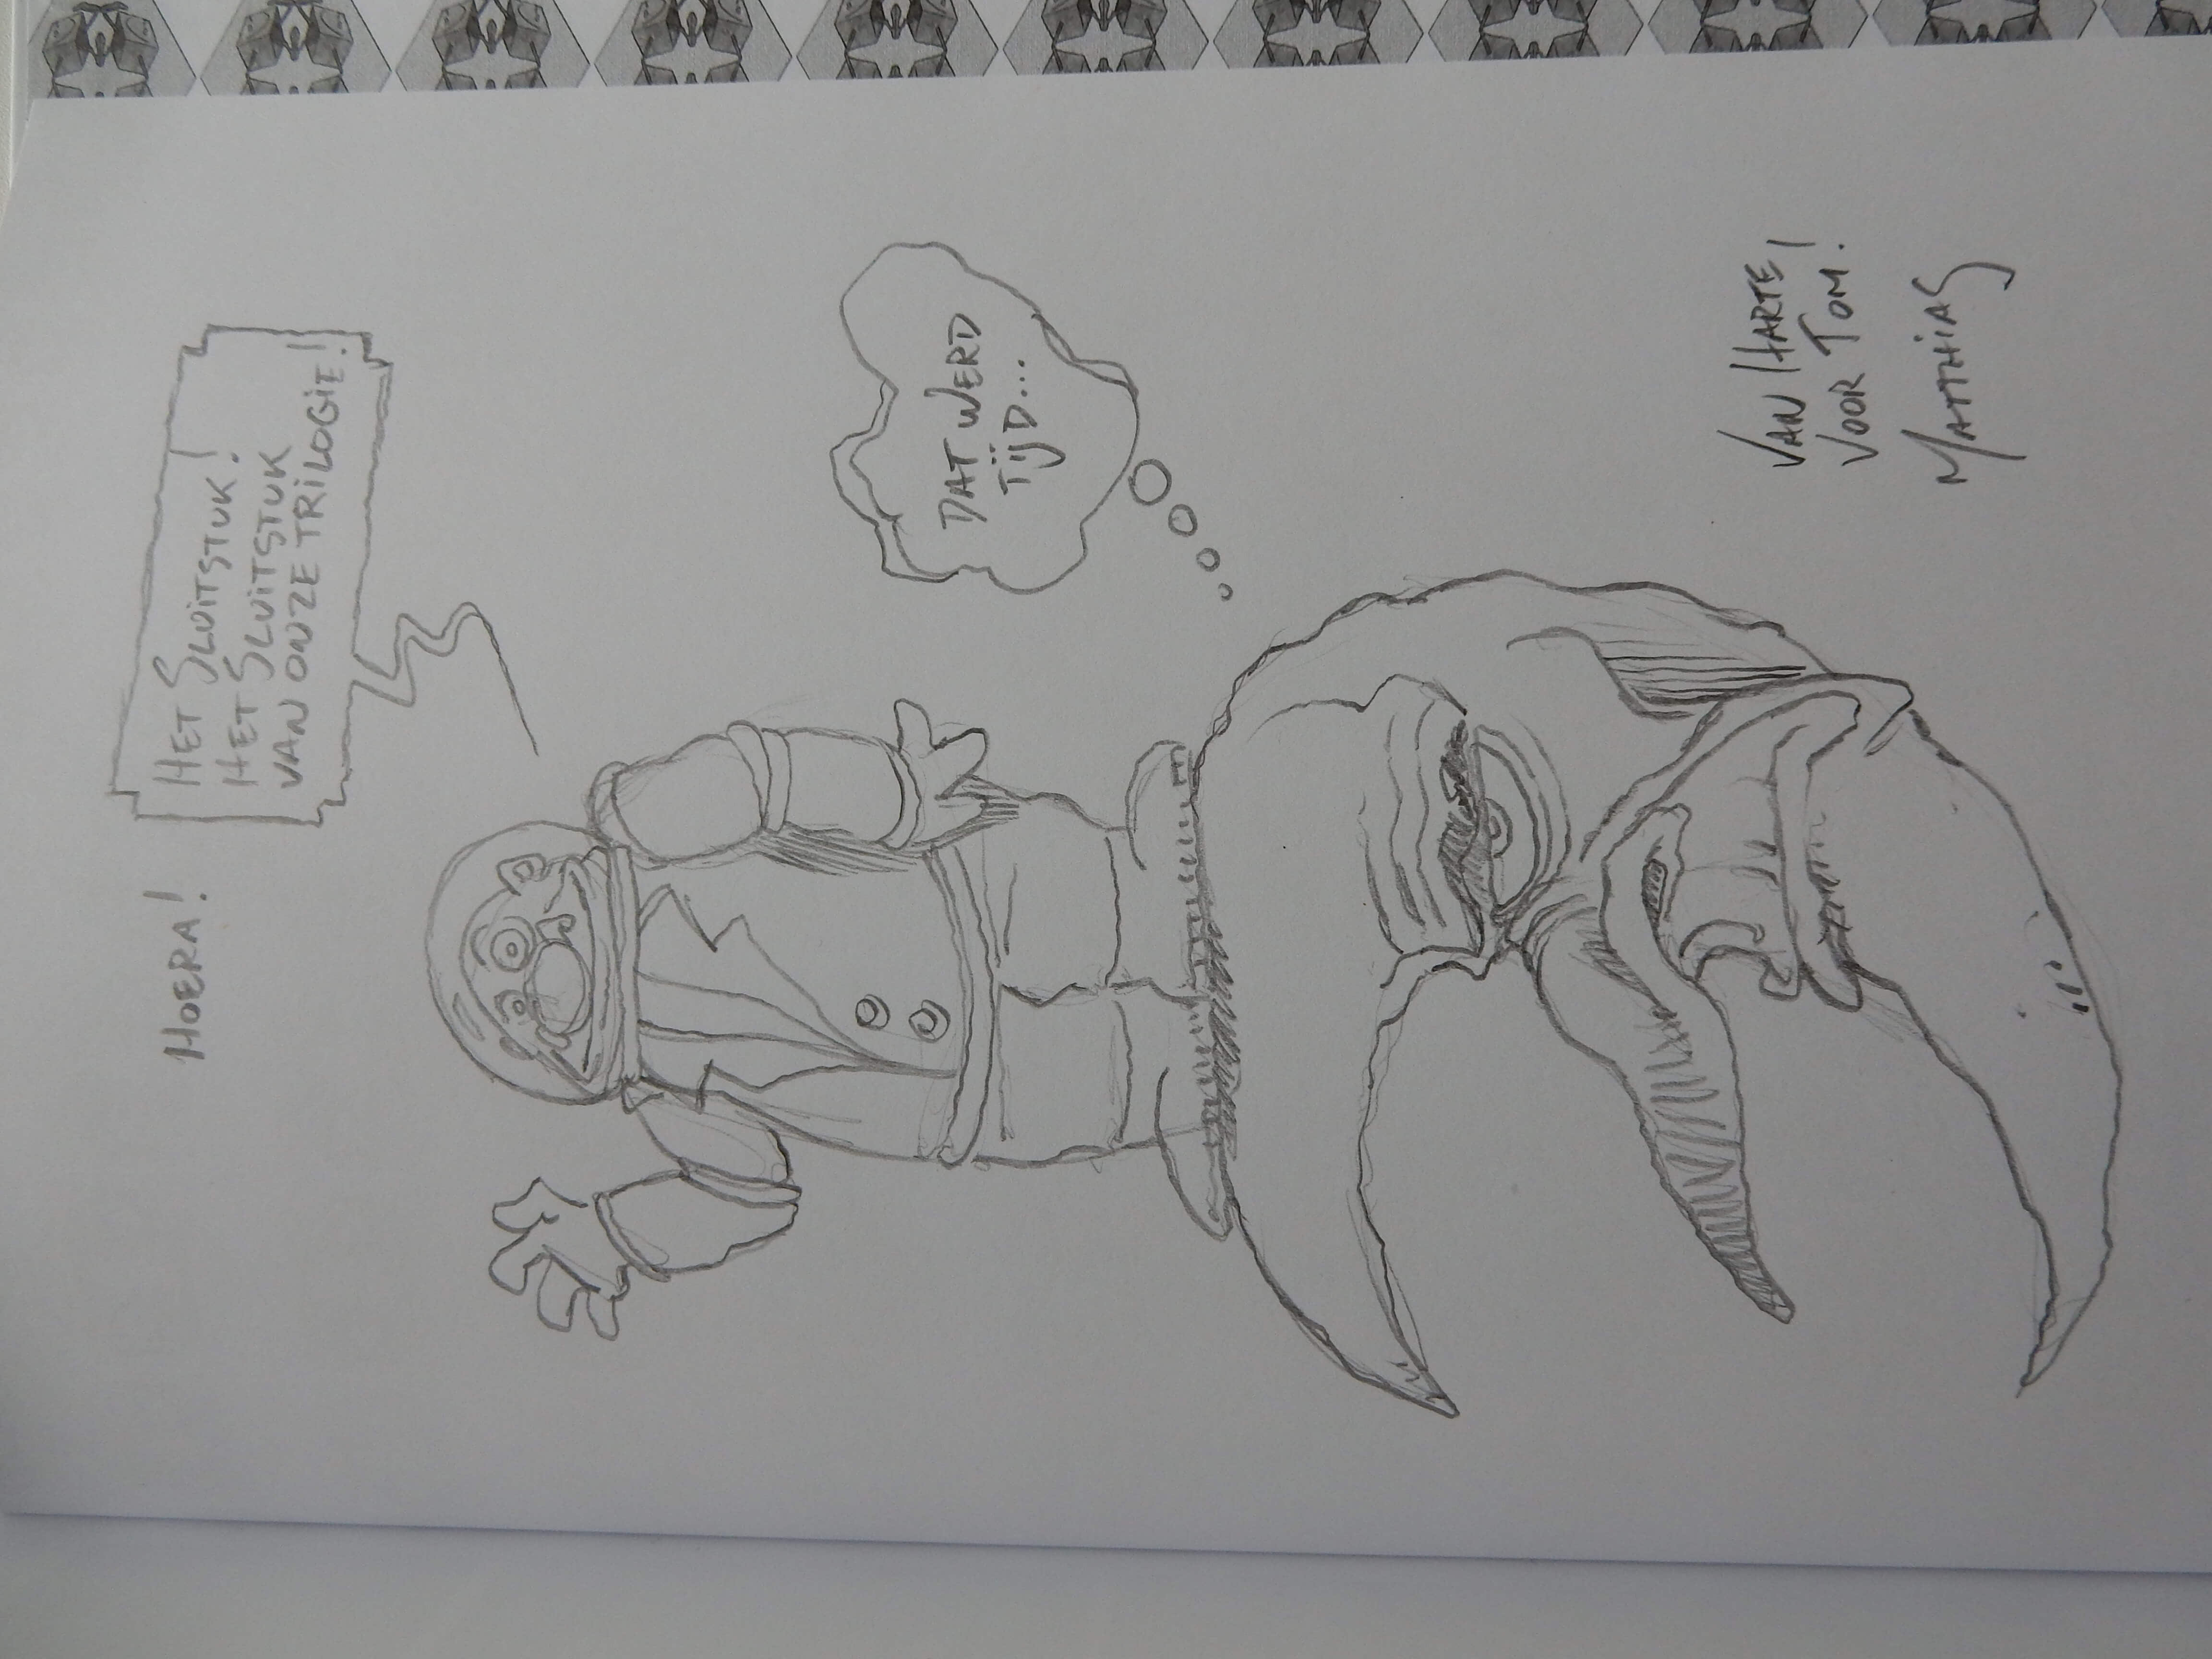 HOERA!
HET SLUITSTUK!
HET SLUITSTUK
VAN ONZE TRILOGIE!
DAT WERD
TIJD...
VAN HARTE,
VOOR TOM!
MATTHIAS